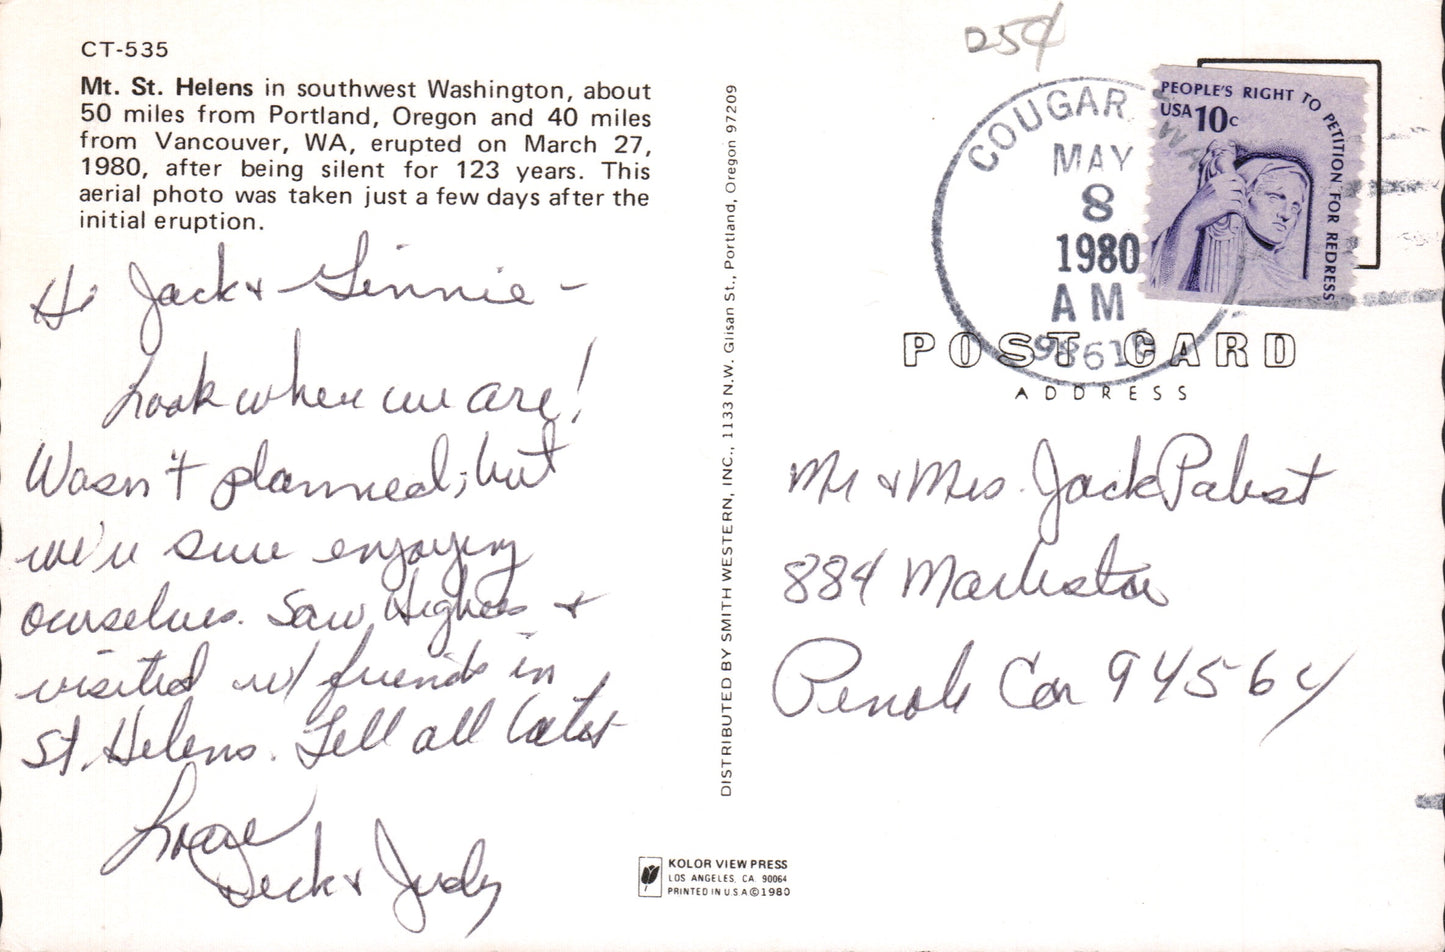 CT-535
Mt. St. Helens in southwest Washington, about
50 miles from Portland, Oregon and 40 miles
from Vancouver, WA, erupted on March 27,
1980, after being silent for 123 years. This
aerial photo was taken just a few days after the
initial eruption.
Hi Jack & Ginnie -
Look where we are!
Wasn't planned; but
we're sure enjoying
ourselves. Saw Hughes &
visited w/ friends in
St. Helens. Tell all later
Love
Dick & Judy
DISTRIBUTED BY SMITH WESTERN, INC., 1133 N.W. Glisan St., Portland, Oregon 97209
KOLOR VIEW PRESS
LOS ANGELES, CA. 90064
PRINTED IN U.S.A © 1980
25¢
COUGAR WA
MAY
8
1980
AM
9861
PEOPLE'S RIGHT TO PETITION FOR REDRESS
USA 10c
POST CARD
ADDRESS
Mr & Mrs. Jack Pabst
884
Pinole Ca 94564